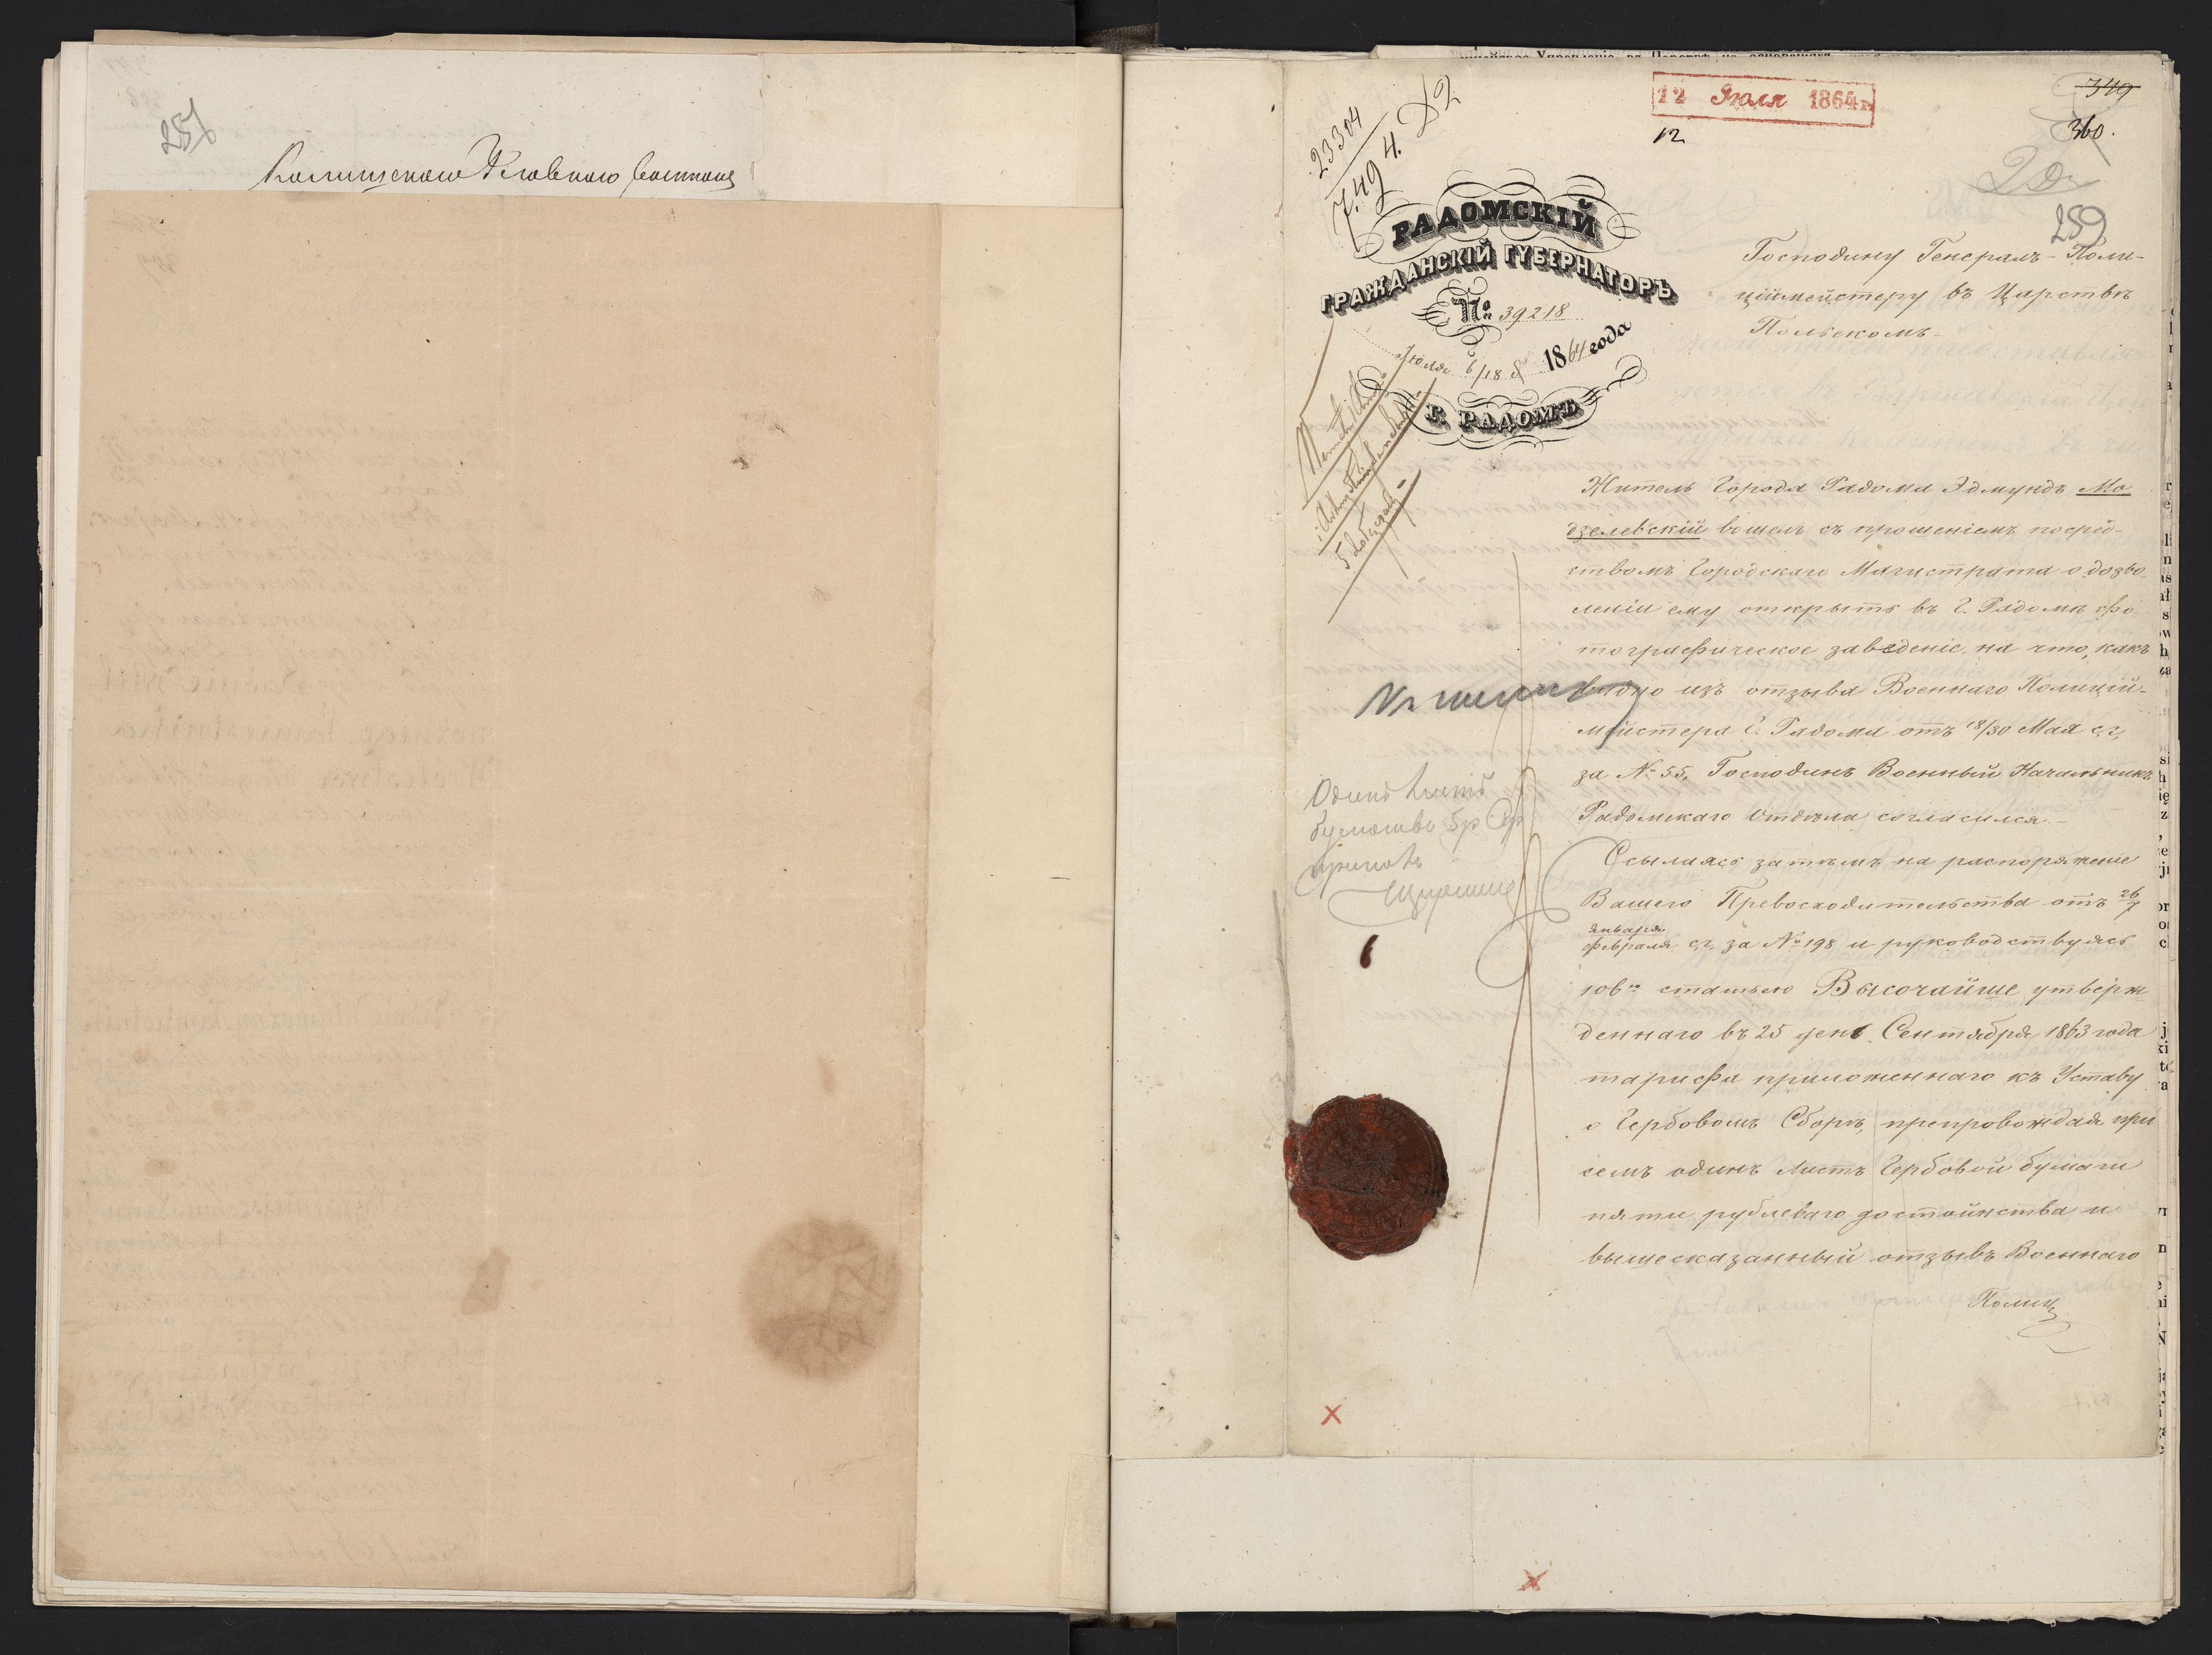 258
12 Июля 1864 г.
12
349
360.
259
23304
7.49
РАДОМСКІЙ
ГРАЖДАНСКІЙ ГУБЕРНАТОРЪ
№ 39218
Июля 6/18 1864 года
Г. РАДОМЪ
Господину Генералъ-Поли-
ціймейстеру въ Царствѣ
Польскомъ
Житель Города Радома Эдмундъ Мо
дзелевскій вошелъ съ прошеніемъ посред-
ствомъ Городскаго Магистрата о дозво
леніи ему открыть въ Г. Радомѣ фо
тографическое заведеніе, на что, какъ
видно изъ отзыва Военнаго Полицій-
мейстера Г. Радома отъ 18/30 Мая с. г.
за № 55, Господинъ Военный Начальникъ
Радомскаго Отдѣла, согласился.-
Ссылаясь затѣмъ на распоряженіе
Вашего Превосходительства отъ 26/7
января
февраля с. г. за № 198 и руководствуясь
106ю статьею Высочайше утверж
деннаго въ 25 день Сентября 1863 года
тарифа приложеннаго къ Уставу
о Гербовомъ Сборѣ, препровождая при
семъ одинъ листъ Гербовой бумаги
пяти рублеваго достоинства и
вышесказанный отзывъ Военнаго
Полиц
Одинъ листъ